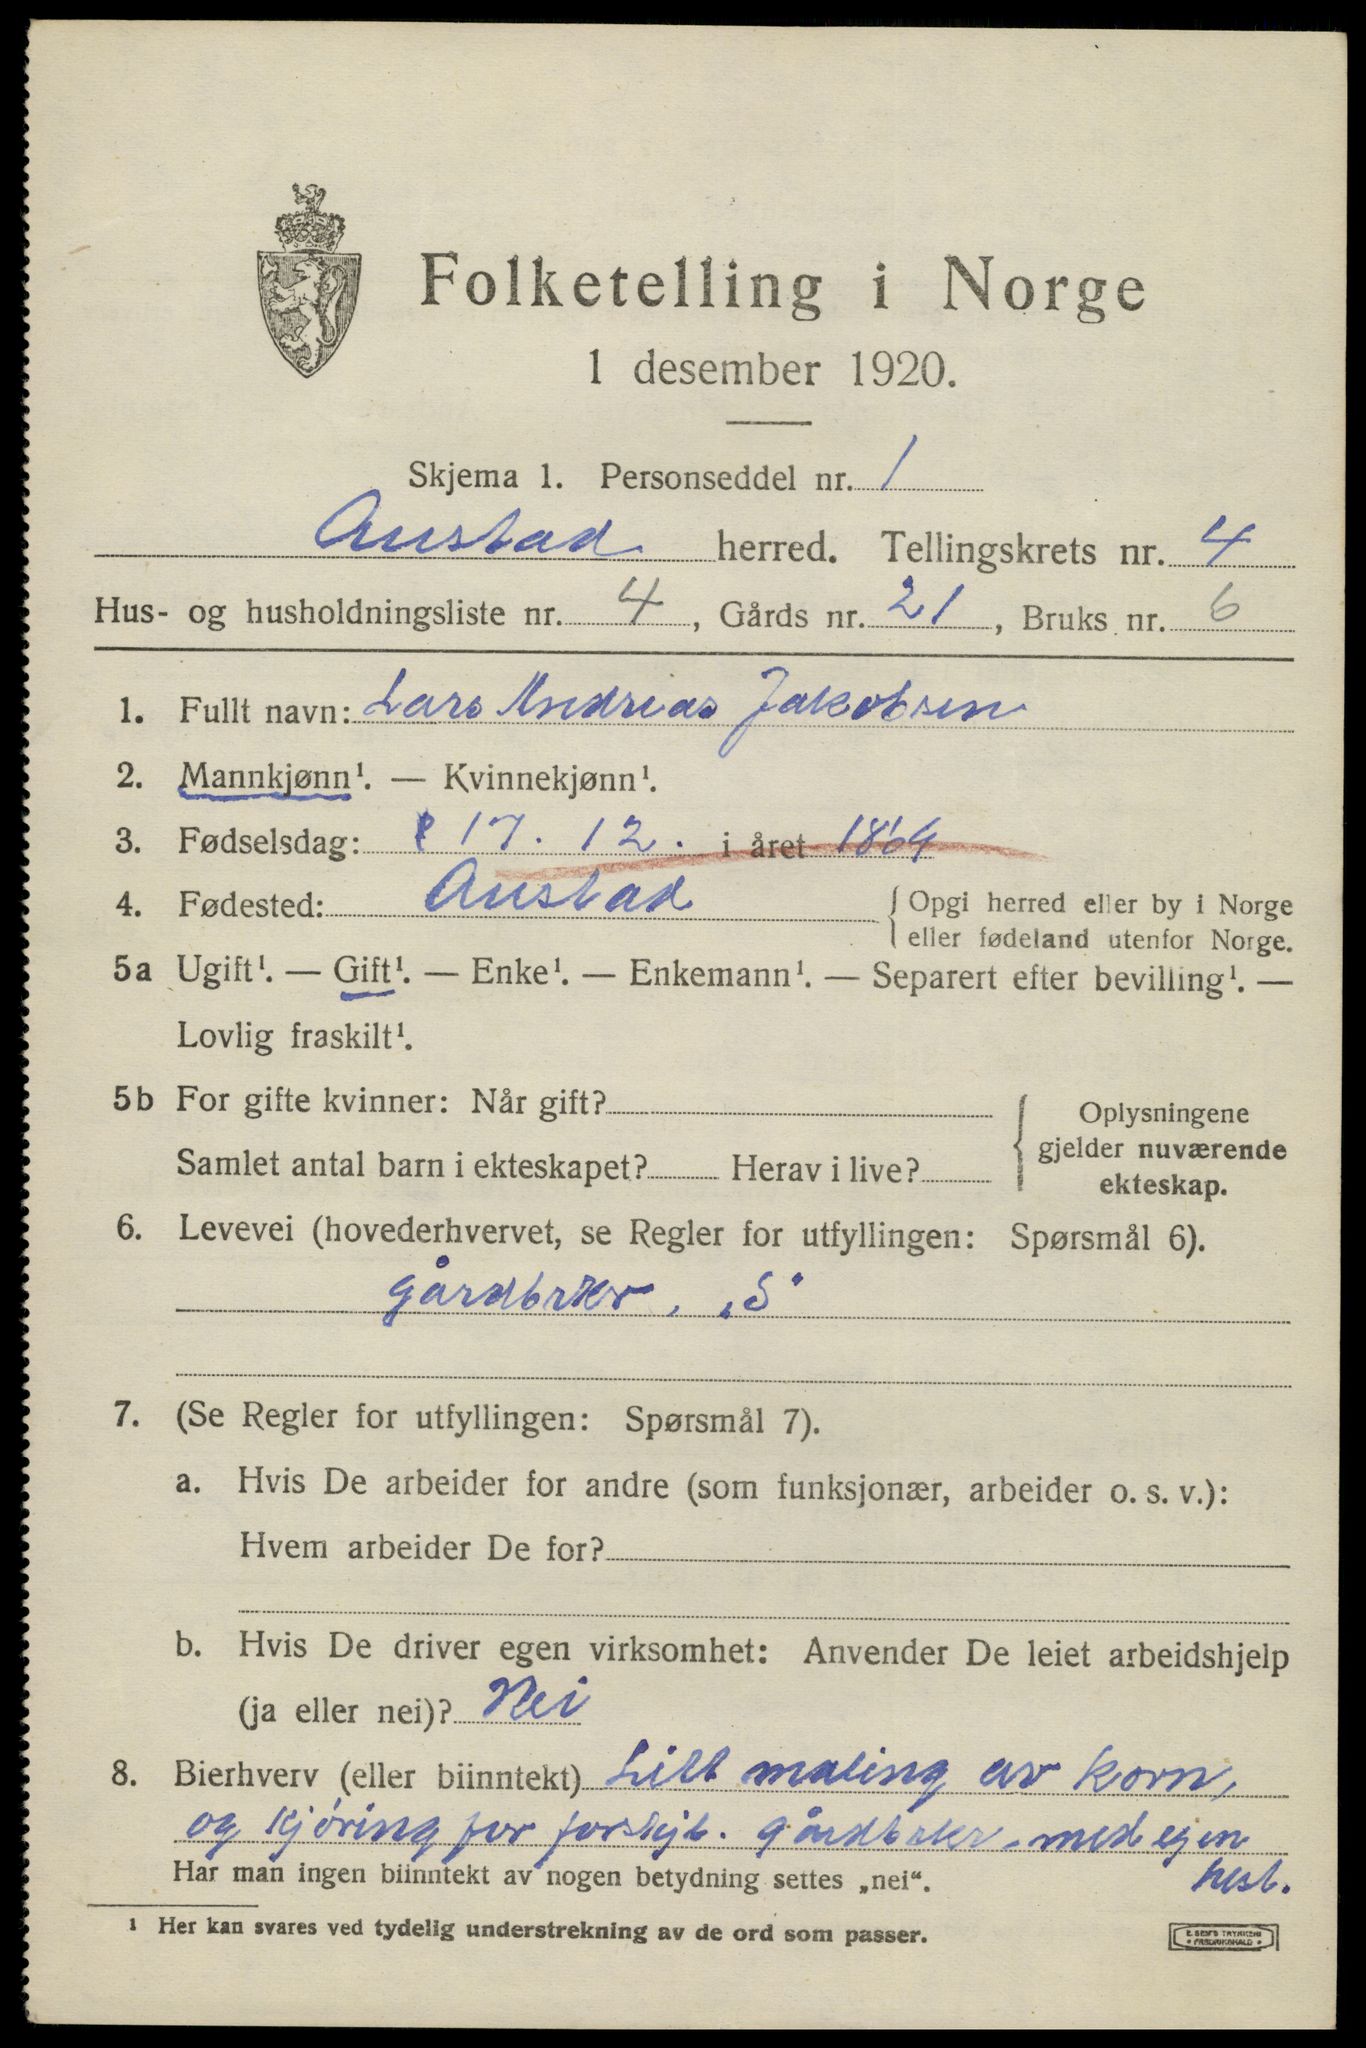 Folketelling i Norge
1 desember 1920.
Skjema 1. Personseddel nr. 1
Austad herred. Tellingskrets nr. 4
Hus- og husholdningsliste nr. 4, Gårds nr. 21, Bruks nr. 6
1. Fullt navn: Lars Andreas Jakobsen
2. Mannkjønn¹. — Kvinnekjønn¹.
3. Fødselsdag: 17. 12. i året 1864
4. Fødested: Austad { Opgi herred eller by i Norge
eller fødeland utenfor Norge.
5a Ugift¹. — Gift¹. — Enke¹. — Enkemann¹. — Separert efter bevilling¹. —
Lovlig fraskilt¹.
5b For gifte kvinner: Når gift?
Samlet antal barn i ekteskapet? Herav i live?
{ Oplysningene
gjelder nuværende
ekteskap.
6. Levevei (hovederhvervet, se Regler for utfyllingen: Spørsmål 6).
gårdbrkr, „S"
7. (Se Regler for utfyllingen: Spørsmål 7).
a. Hvis De arbeider for andre (som funksjonær, arbeider o. s. v.):
Hvem arbeider De for?
b. Hvis De driver egen virksomhet: Anvender De leiet arbeidshjelp
(ja eller nei)? Nei
8. Bierhverv (eller biinntekt) Litt maling av korn,
og kjöring for forskjt. gårdbrkr. med egen
hest.
Har man ingen biinntekt av nogen betydning settes „nei“.
¹ Her kan svares ved tydelig understrekning av de ord som passer.
E. SEM'S TRYKKERI
FREDRIKSHALD